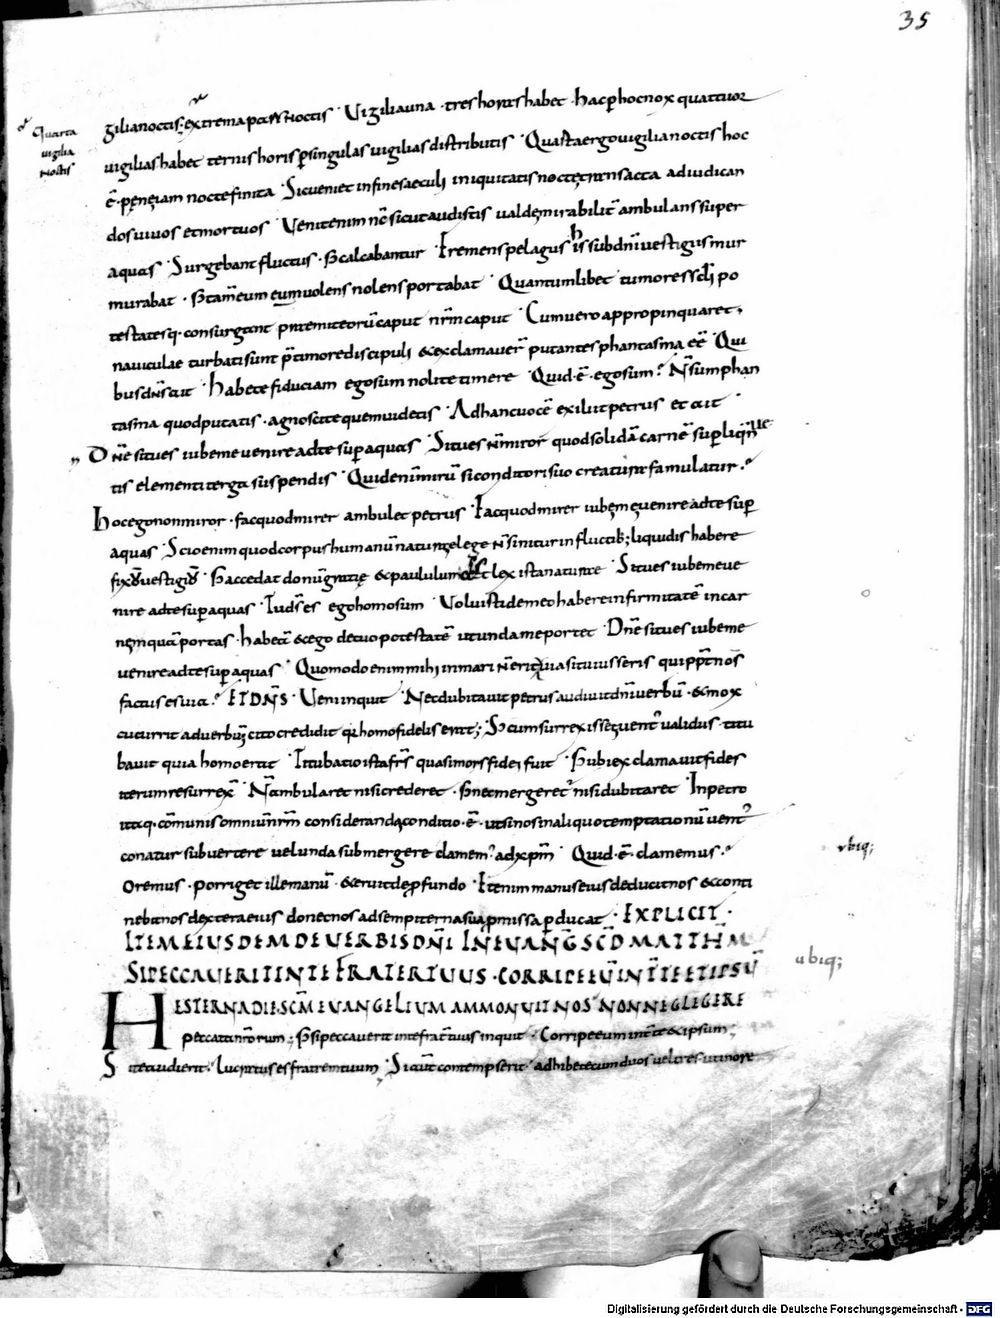 35
Quarta
uigilia
noctis
gilia noctis; extrema pars noctis · Vigilia una · tres horas habet · hac p hoc nox quattuor
uigilias habet ternis horis p singulas uigilias distributis · Quarta ergo uigilia noctis hoc
ē · pene iam nocte finita · Sic ueniet in fine saeculi iniquitatis nocte transacta ad iudican
dos uiuos et mortuos · Venit enim nc̄ sicut audistis ualde mirabilit̄ ambulans super
aquas · Surgebant fluctus · s; calcabantur · Fremens pelagus his sub dnī uestigiis mur
murabat · s; tam̄ eum uolens nolens portabat · Quantumlibet tumores scl̄i po
testatesq · consurgant premit eorū caput nr̄m caput · Cum uero appropinquaret,
nauiculae turbati sunt p̄ timore discipuli & exclamauer̄ putantes phantasma eē · Qui
bus dn̄s ait · Habete fiduciam ego sum nolite timere · Quid · ē · ego sum? N̄ sum phan
tasma quod putatis · agnoscite quem uidetis · Ad hanc uocē exiluit petrus et ait ·
Dn̄e si tu es iube me uenire ad te sup aquas · Si tu es n̄ miror quod solidā carnē sup liqn̄
tis elementi terga suspendis · Quid enim mirū si conditori suo creatura famulatur?
hoc ego non miror · fac quod mirer ambulet petrus · Fac quod mirer iube me uenire ad te sup
aquas · Scio enim quod corpus humanū naturae lege n̄ sinitur in fluctib; liquidis habere
fixū uestigiū · s; accedat donū gratiae & paululum lex ista naturae · Si tu es iube me ue
nire ad te sup aquas · Tu ds̄ es ego homo sum · Voluisti de meo habere infirmitatē in car
nem quā portas · habeā & ego de tuo potestatē ut unda me portet · Dn̄e si tu es iube me
uenire ad te sup aquas · Quomodo enim mihi in mari n̄ erit uia si tu iusseris qui ppt̄ nos
factus es uia? ET DN̄S · Veni inquit · Nec dubitauit petrus audiuit dnī uerbū · & mox
cucurrit ad uerbū; cito credidit quia homo fidelis erat; s; cum surrexisset uent̄ ualidus · titu
bauit quia homo erat · Titubatio ista frs̄ quasi mors fidei fuit · s; ubi exclamauit fides
iterum resurrex̄ · N̄ ambularet nisi crederet · s; nec mergeret̄ nisi dubitaret · In petro
itaq · cōmunis omniū nr̄m consideranda conditio · ē · ut si nos in aliquo temptationū uent̄
conatur subuertere uel unda submergere clamem̄ ad xp̄m · Quid · ē · clamemus?
Oremus · porriget ille manū · & eruit de pfundo · Item manus eius deducit nos & conti
nebit nos dextera eius donec nos ad sempiterna sua pmissa pducat · EXPLICIT ·
ITEM EIUSDEM DE VERBIS DN̄I IN EUANG SCD̄ MATTHM
SI PECCAVERIT IN TE FRATER TUUS · CORRIPE EŪ INT̄ TE ET IPSŪ
HESTERNA DIE SCM̄ EVANGELIUM AMMONUIT NOS NON NEGLEGERE
peccata nr̄orum; s; si peccauerit in te frat̄ tuus inquit · Corripe eum int̄ te & ipsum;
Si te audierit · Lucratus es fratrem tuum; Si aut̄ contempserit · adhibe tecum duos uel tres · ut in ore
ubiq;
ubiq;
Digitalisierung gefördert durch die Deutsche Forschungsgemeinschaft - DFG